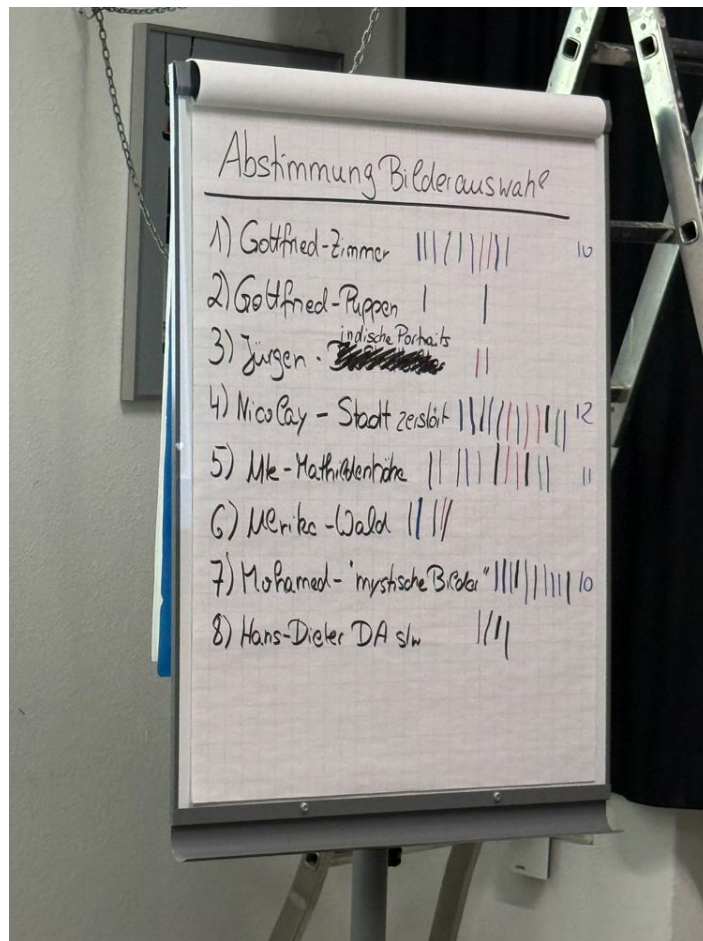 Abstimmung Bilderauswahl
1) Gottfried-Zimmer 10
2) Gottfried-Puppen
indische Portraits
3) Jürgen -
4) Nicolay - Stadt zerstört 12
5) Ulle-Mathildenhöhe 11
6) Ulrike-Wald
7) Mohamed- "mystische Bilder" 10
8) Hans-Dieter DA s/w